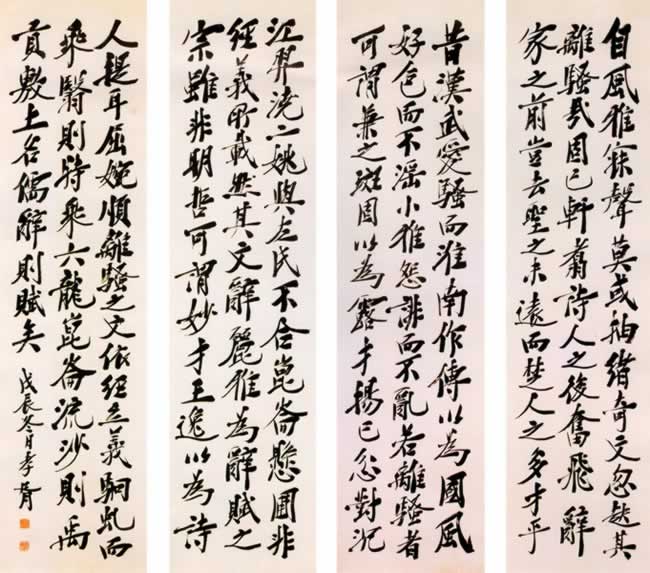 自風雅寢聲莫或抽緒奇文忽起其
離騷哉固已軒翥詩人之後奮飛辭
家之前豈去聖之未遠而楚人之多才乎
昔漢武愛騷而淮南作傳以為國風
好色而不淫小雅怨誹而不亂若離騷者
可謂兼之班固以為露才揚己忿對沉
江羿澆二姚與左氏不合崑崙懸圃非
經義所載然其文辭麗雅為辭賦之
宗雖非明哲可謂妙才王逸以為詩
人提耳屈婉順離騷之文依經立義駟虬而
乘翳則時乘六龍崑崙流沙則禹
貢敷土名儒辭則賦矣
戊辰冬月孝胥